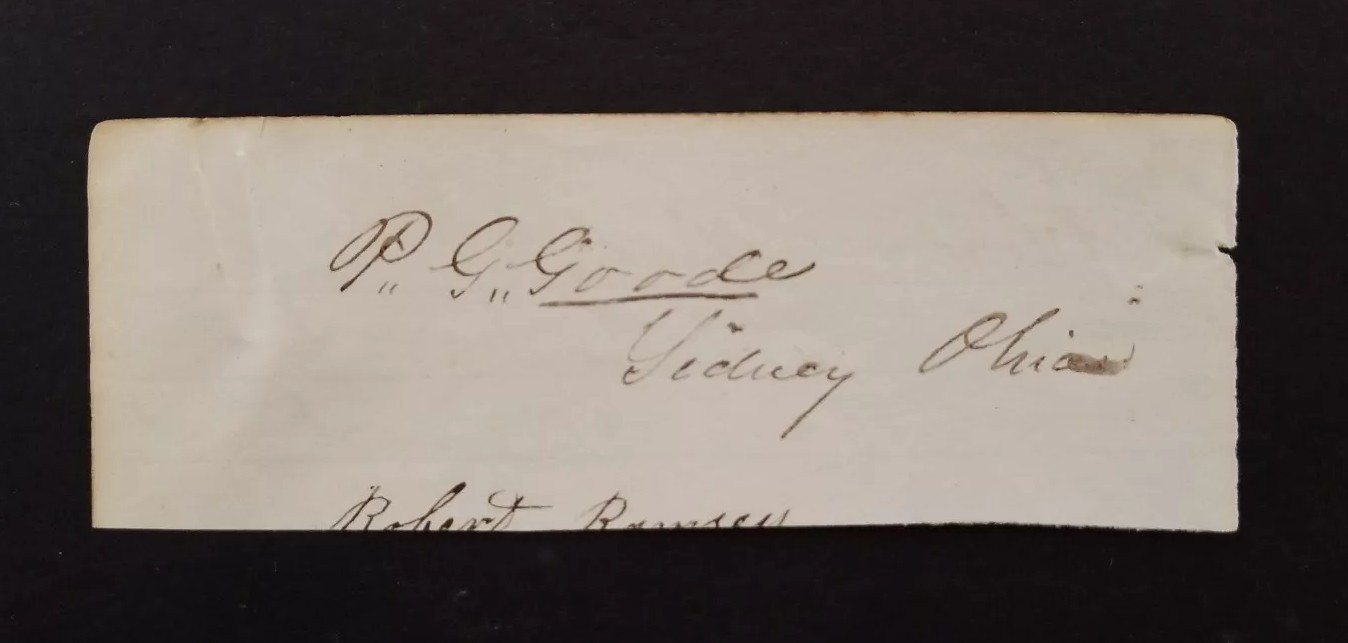 P,, G,, Goode
Sidney Ohio
Robert Ramsey